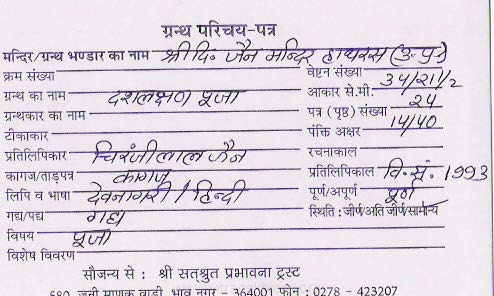 ग्रन्थ परिचय-पत्र
मन्दिर/ग्रन्थ भण्डार का नाम श्री दि. जैन मन्दिर हाथरस (उ.प्र.)
क्रम संख्या वेष्टन संख्या
ग्रन्थ का नाम दशलक्षण पूजा आकार से.मी. 34/21 1/2
ग्रन्थकार का नाम पत्र (पृष्ठ) संख्या 24
टीकाकार पंक्ति अक्षर 14/40
प्रतिलिपिकार चिरंजीलाल जैन रचनाकाल
कागज/ताड़पत्र कागज प्रतिलिपिकाल वि.सं. 1993
लिपि व भाषा देवनागरी / हिन्दी पूर्ण/अपूर्ण पूर्ण
गद्य/पद्य गद्य स्थिति : जीर्ण/अति जीर्ण/सामान्य
विषय पूजा
विशेष विवरण
सौजन्य से : श्री सत्श्रुत प्रभावना ट्रस्ट
580, जूनी माणक वाडी, भाव नगर - 364001 फोन : 0278 - 423207